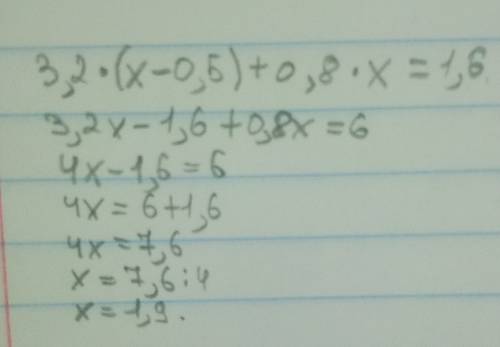 3,2·(x-0,5)+0,8·x=1,6
3,2x-1,6+0,8x=6
4x-1,6=6
4x=6+1,6
4x=7,6
x=7,6:4
x=1,9.